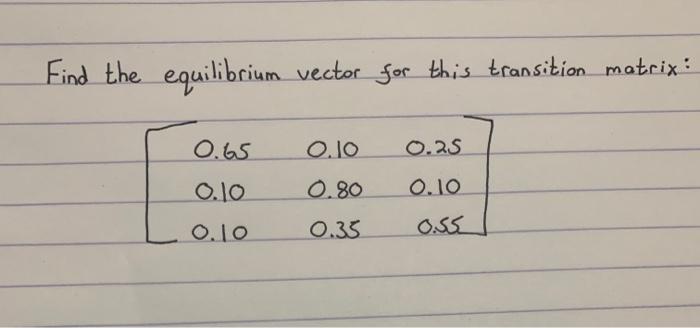 Find the equilibrium vector for this transition matrix:
0.65 0.10 0.25
0.10 0.80 0.10
0.10 0.35 0.55